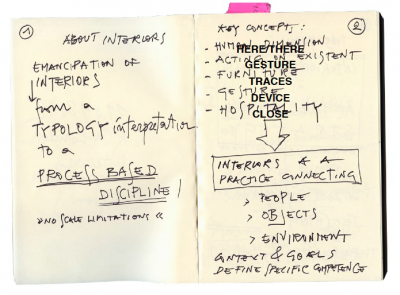 1
ABOUT INTERIORS
EMANCIPATION OF
INTERIORS
from a
TYPOLOGY interpretation
to a
PROCESS BASED
DISCIPLINE
»NO SCALE LIMITATIONS«
2
KEY CONCEPT:
- HUMAN DIMENSION
- ACTING ON EXISTENT
- FURNITURE
- GESTURE
- HOSPITALITY
HERE/THERE
GESTURE
TRACES
DEVICE
CLOSE
INTERIORS AS A
PRACTICE CONNECTING
> PEOPLE
> OBJECTS
> ENVIRONMENT
CONTEXT & GOALS
DEFINE SPECIFIC COMPETENCE